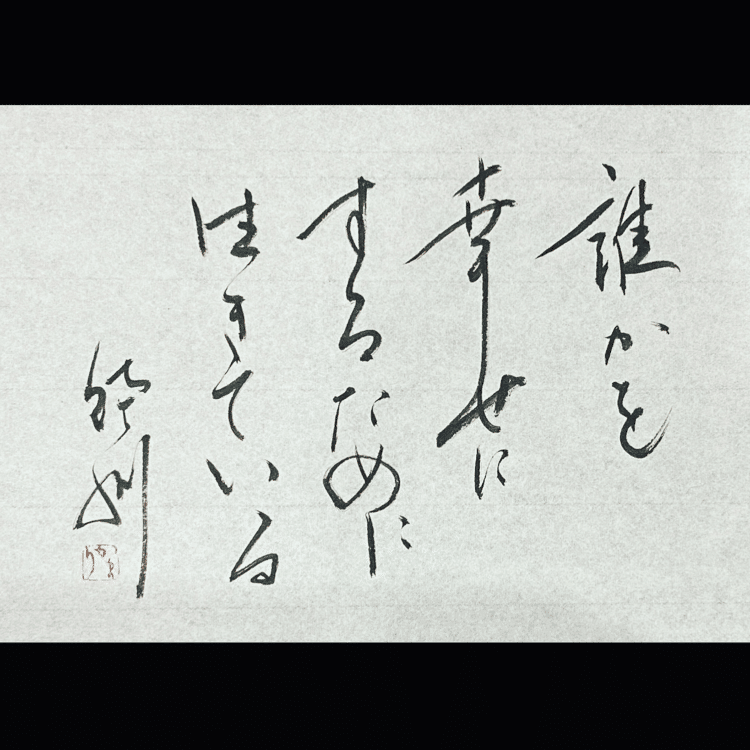 誰かを
幸せに
するために
生きている